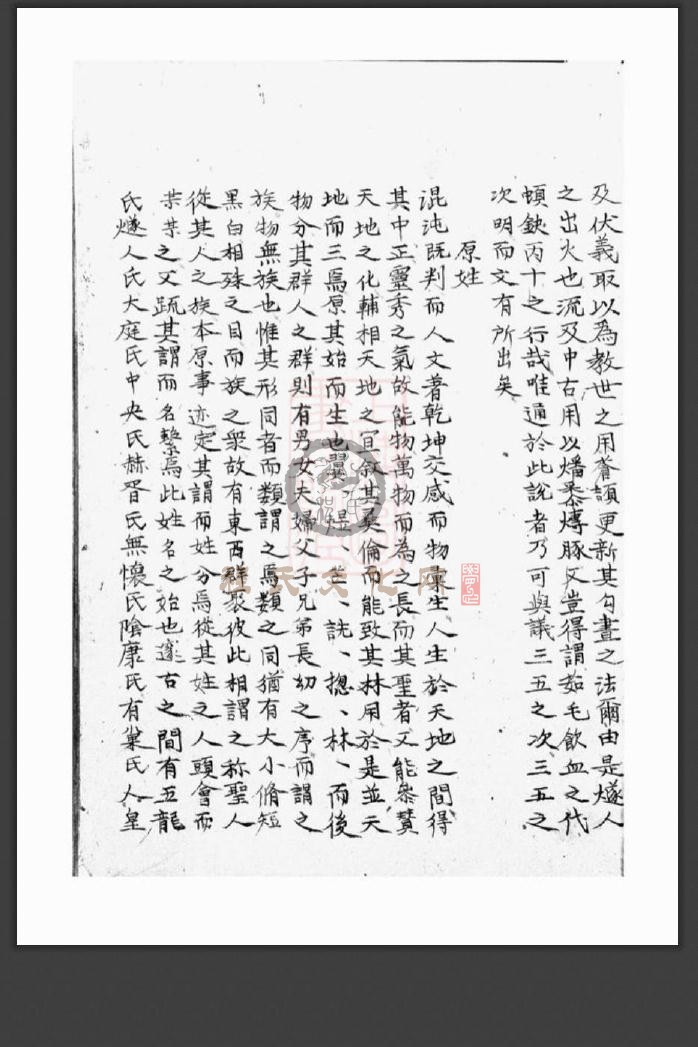 及伏義取以為教世之用蒼頡更新其勾畫之法爾由是燧人
之出火也流及中古用以燔黍燖豚又豈得謂茹毛飲血之代
頓鈌丙丁之行哉唯通於此說者乃可與議三五之次三五之
次明而文有所出矣
原姓
混沌既判而人文著乾坤交感而物彙生人生於天地之間得
其中正靈秀之氣故能物萬物而為之長而其聖者又能叅賛
天地之化輔相天地之冝叙其彛倫而能致其林用於是並天
地而三焉原其始而生也 詵、揔、林、而後
物分其群人之群則有男女夫婦父子兄弟長幼之序而謂之
族物無族也惟其形同者而類謂之焉類之同猶有大小脩短
黑白相殊之目而族之衆故有東西群聚彼此相謂之称聖人
從其人之族本原事迹定其謂而姓分焉從其姓之人頭會而
苐苐之又疏其謂而名繫焉此姓名之始也邃古之間有五龍
氏燧人氏大庭氏中央氏赫胥氏無懷氏陰康氏有巢氏人皇
程氏文化网